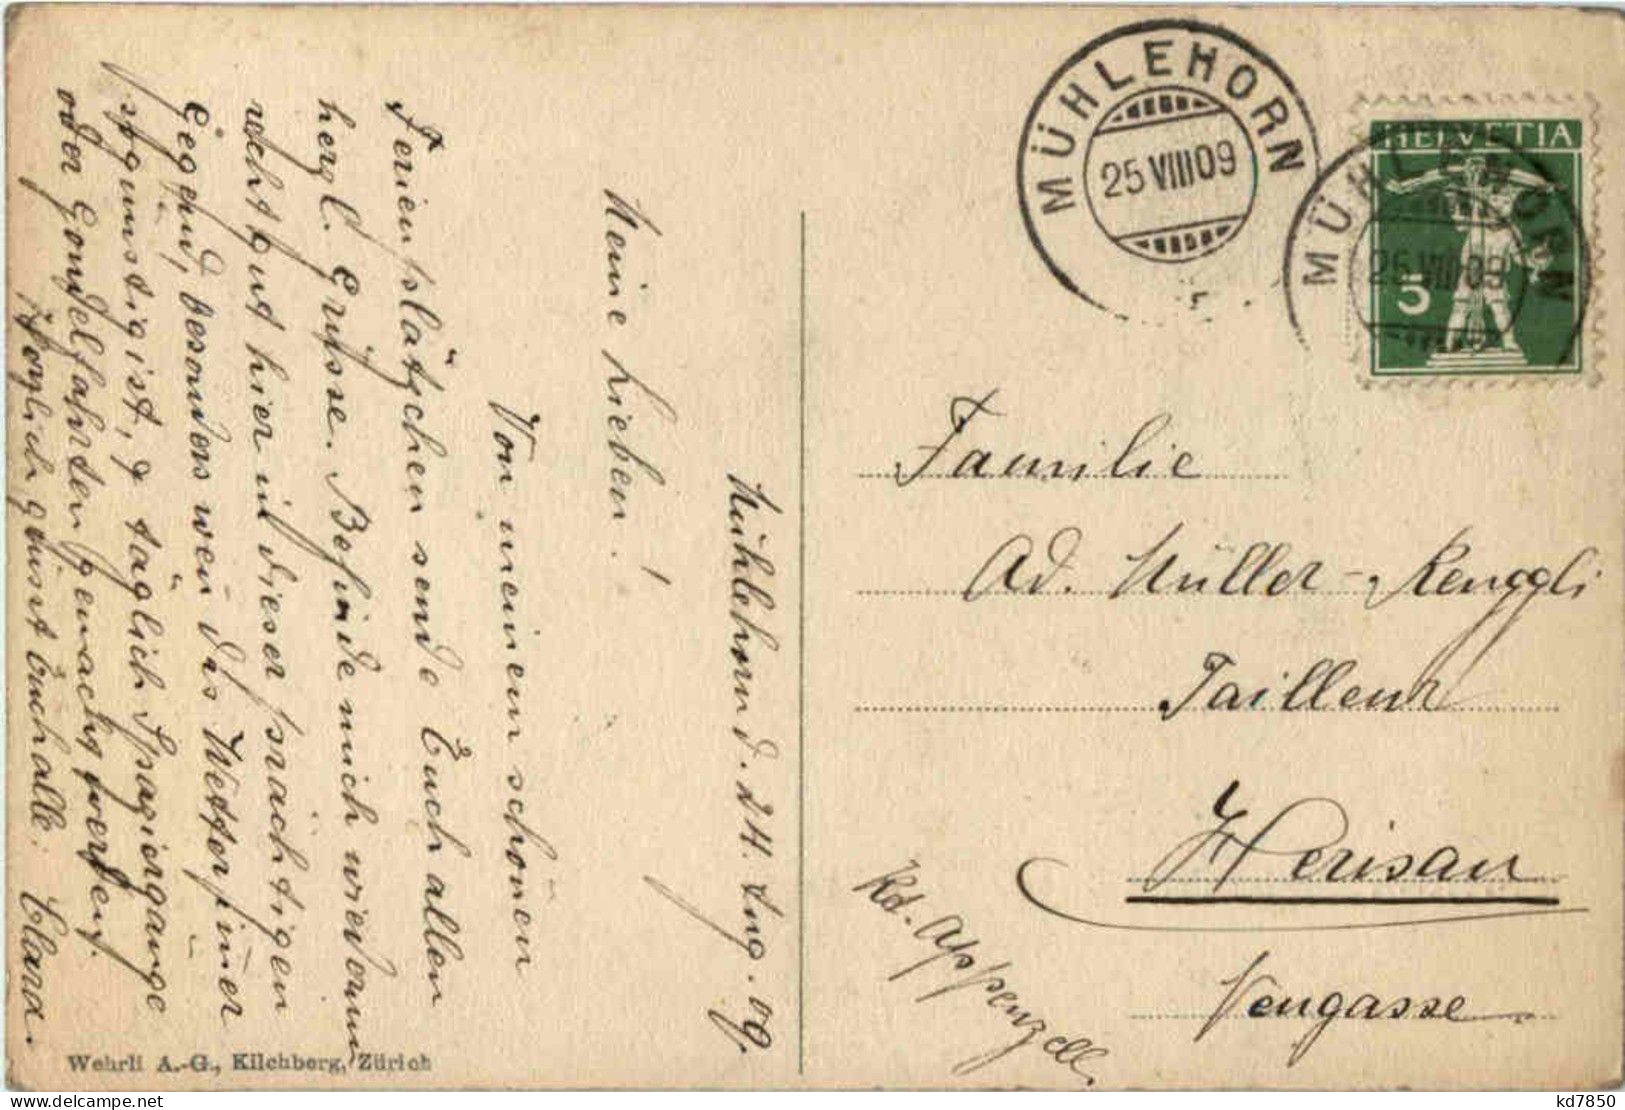 Mühlehorn d. 24. Aug. 09.
Meine Lieben!
Von meinem schönen
Ferienplätzchen sende Euch allen
herzl. Grüsse. Befinde mich wiederum
recht gut hier in dieser prächtigen
Gegend, besonders wen̄ das Wetter
günstig ist, & täglich Spaziergänge
oder Gondelfahrten gemacht werden.
Herzlich grüsst Euch alle Clara.
Wehrli A.-G., Kilchberg, Zürich
MÜHLEHORN
25 VIII 09
HELVETIA
5
MÜHLEHORN
25 VIII 09
Familie
Ad. Müller-Renggli
Tailleur
Herisau
Kt. Appenzell.
kd7850